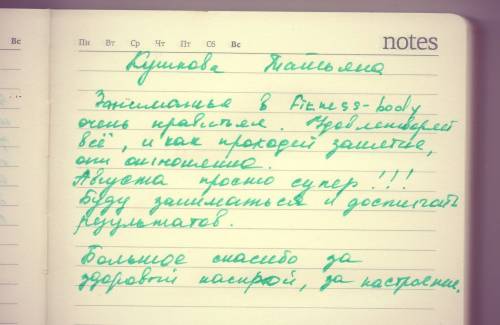 Вс
Пн Вт Ср Чт Пт Сб Вс
notes
Кушкова Татьяна
Заниматься в Fitness-body
очень нравиться. Удовлетворяет
всё, и как проходят занятие,
отношения.
Августа просто супер!!!
Буду заниматься и достигать
результатов.
Большое спасибо за
здоровый настрой, за настроение.